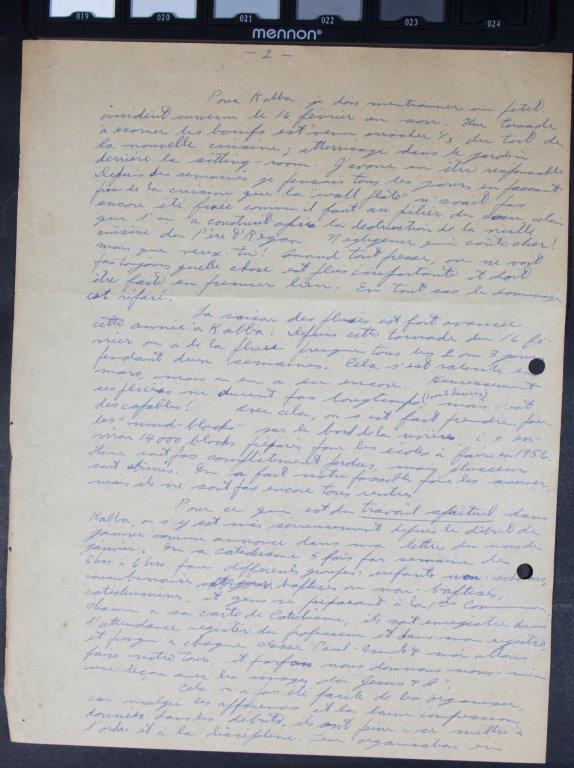 019 020 021 022 023 024
mennon®
- 2 -
Pour Kabba, je dois mentionner un petit
incident survenu le 16 février au soir. Une tornade
à écorner les boeufs est venu arracher 1/3 du toit de
la nouvelle cuisine; atterrissage dans le jardin
derrière la sitting-room. J'avoue en être responsable
Depuis des semaines je pensais tous les jours en passant
près de la cuisine que la "wall plate" n'avait pas
encore été fixée comme il faut au pilier du coin, celui
que l'on a construit après la destruction de la vieille
cuisine du Père O'Regan. Négligence qui coûte cher!
mais que veux-tu! Quand tout presse, on ne voit
pas toujours quelle chose est plus importante et doit
être fait en premier lieu. En tout cas le dommage
est réparé.
La saison des pluies est fort avancée
cette année à Kabba. Depuis cette tornade du 16 fé-
vrier on a de la pluie presque tous les 2 ou 3 jours
pendant deux semaines. Cela s'est ralenti en
mars, mais on en a eu encore. Heureusement
ces pluies ne durent pas longtemps mais c'est
des capables! Avec cela, on s'est fait prendre pour
les "mud-blocks" sur le bord de la rivière i.e. en-
viron 14000 blocks préparés pour les écoles à faire en 1956.
Ils ne sont pas complètement perdus, mais plusieurs
sont abimés. On a fait notre possible pour les sauver,
mais ils ne sont pas encore tous rentrés.
Pour ce qui est du travail spirituel dans
Kabba, on s'y est mis sérieusement depuis le début de
janvier comme annoncé dans ma lettre du mois de
janvier. On a catéchisme 5 fois par semaine de
5hrs à 6 hrs. pour différents groupes: enfants non-scolaires,
concubinaires baptisés ou non baptisés,
catéchumènes et ceux se préparant à la 1ère Communion,
chacun a sa carte de Catéchisme, ils sont enregistrés dans
l'attendance register du professeur et dans mon registre
et jusqu'à chaque classe Paul-Emile & moi allons
faire notre tour, et parfois nous donnons nous-même
une leçon avec les images
Cela n'a pas été facile de les organiser,
car malgré les apparences et la bonne impression
donnée dans les débuts, ils ont peine à se mettre à
l'ordre et à la discipline. Leur organisation en